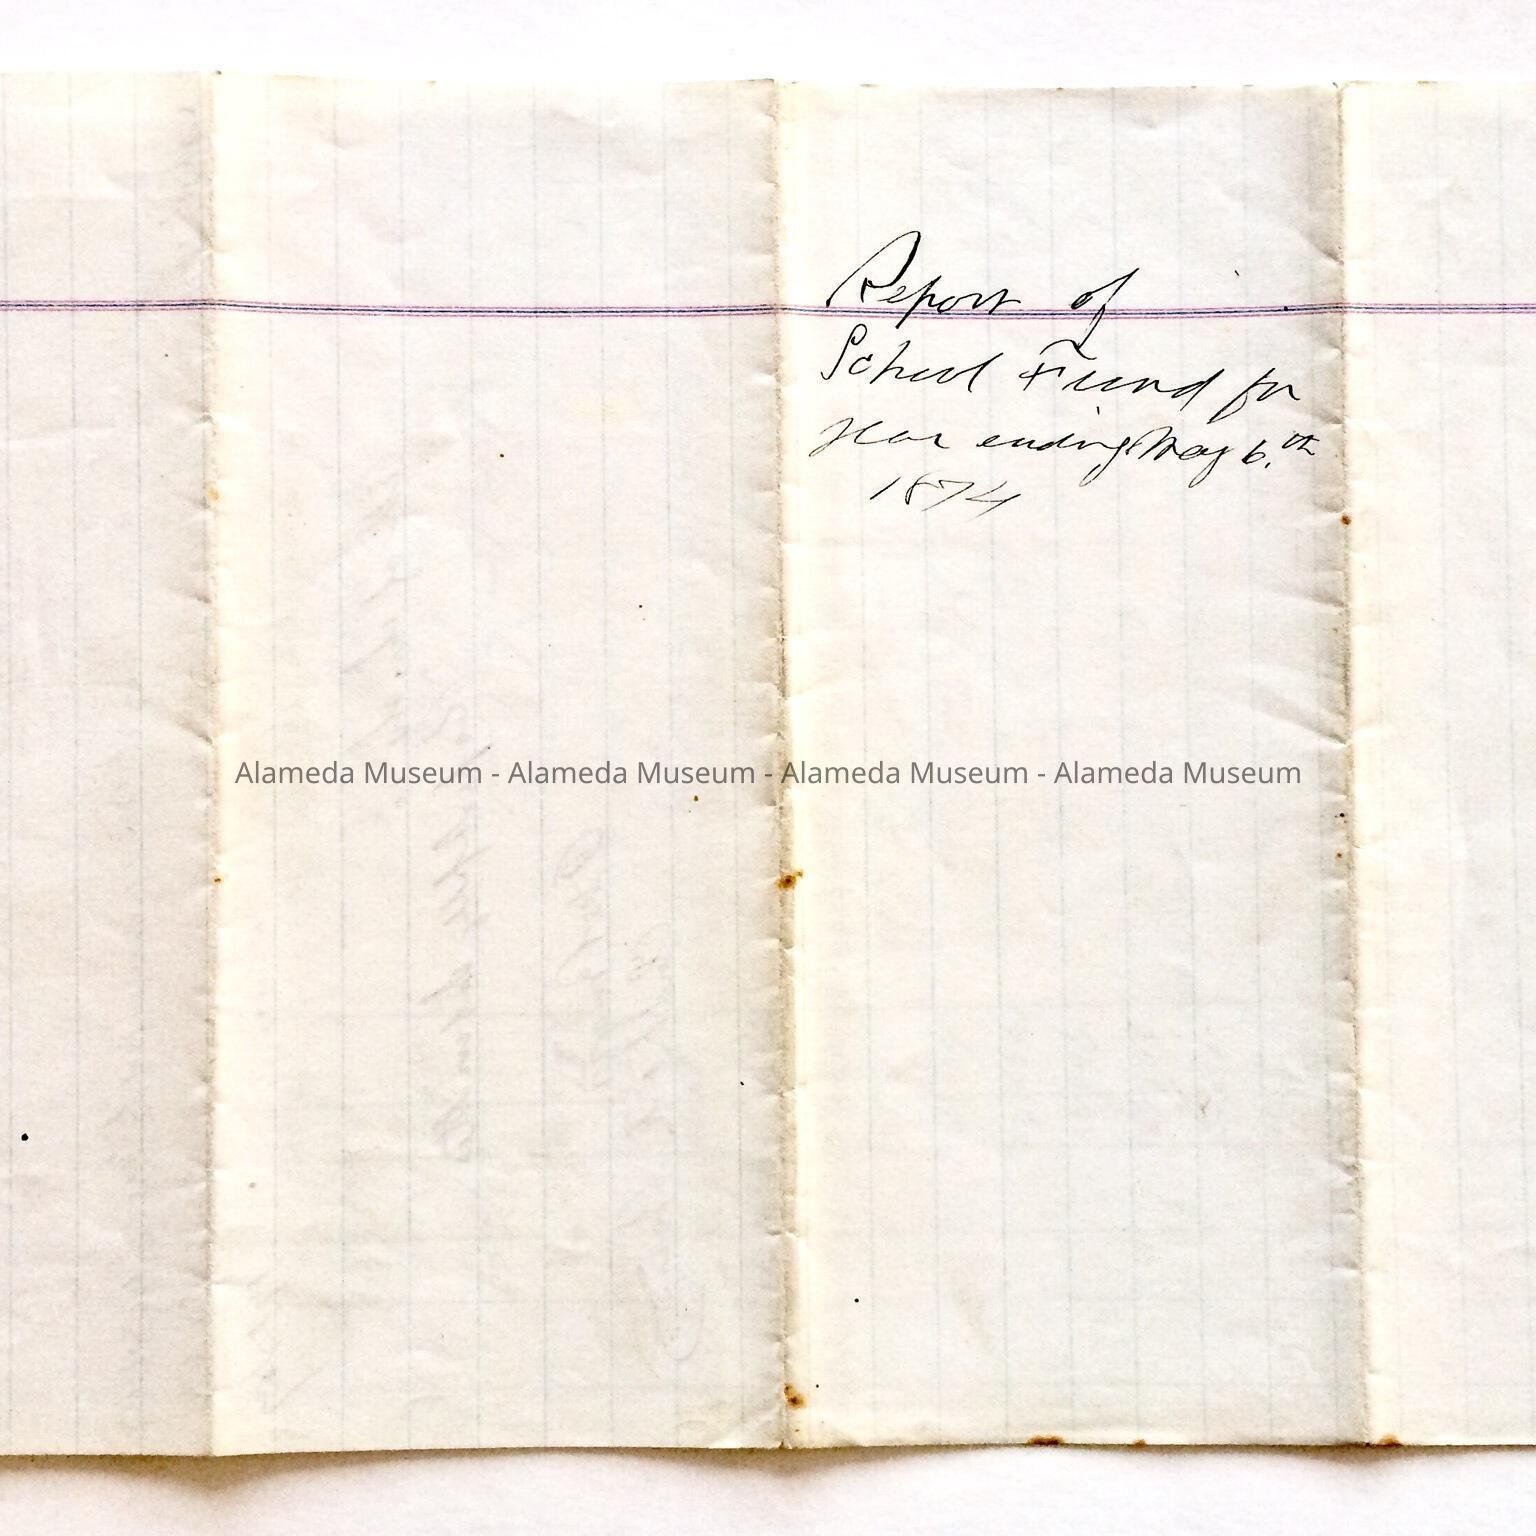 Report of
School Fund for
year ending May 6.th
1874
Alameda Museum - Alameda Museum - Alameda Museum - Alameda Museum